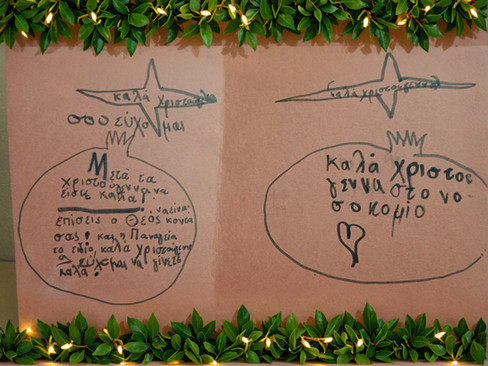 καλά χριστούγεννα
σοσ εύχομαι
Μετά τα
χριστούγεννα να
είσε καλά!
να είναι
επίσεις ο Θεός κοντά
σας! και η Παναγεία
το ίδιο, καλά χριστούγενα
εύχομαι να γίνετε
καλά!
καλά χριστούγεννα
καλά χριστού
γεννα στο νο
σοκομίο